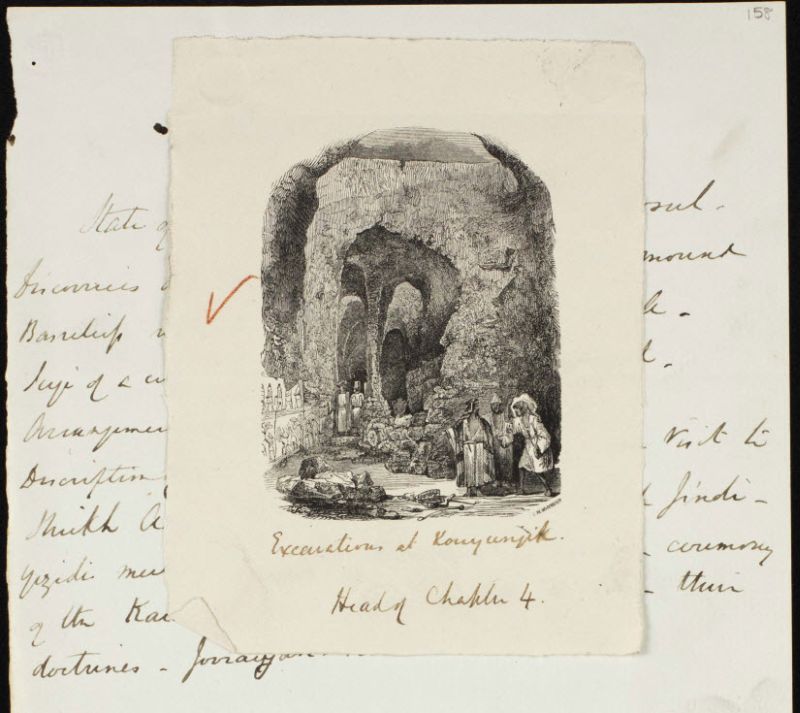 158
State of
sul.
Discoveries
mound
Basreliefs
Siege of a
Arrangemen
Visit to
Description
Jindi -
Sheikh A
ceremony
Yezidi
their
of the Kai
doctrines -
Excavations at Kouyunjik.
Head of Chapter 4.